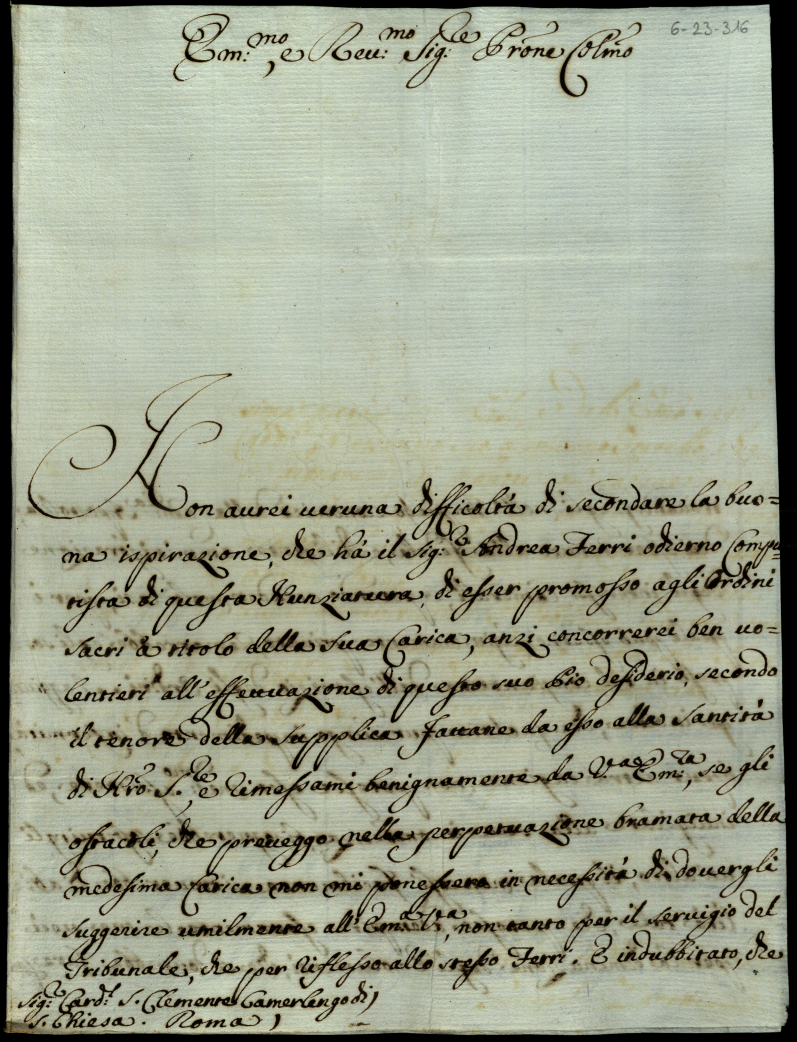 6-23-316
Em:mo, e Reu:mo Sig:re Prone Colmo
Non aurei ueruna difficoltà di secondare la buo=
na ispirazione, che hà il Sig:r Andrea Ferri odierno Compu=
tista di questa Nunziatura, di esser promosso agli Ordini
Sacri à titolo della sua Carica, anzi concorrerei ben uo=
lentieri all' effettuazione di questo suo pio desiderio, secondo
il tenore della supplica fattane da esso alla Santità
di Nro S.re, e rimessami benignamente da V.a Em:za, se gli
ostacoli, che preueggo nella perpetuazione bramata della
medesima Carica non mi ponessero in necessità di douergli
suggerire umilmente all' Em:a V.a, non tanto per il seruigio del
Tribunale, che per riflesso allo stesso Ferri. È indubbitato, che
Sig:r Card:l S. Clemente Camerlengo di
S. Chiesa. Roma